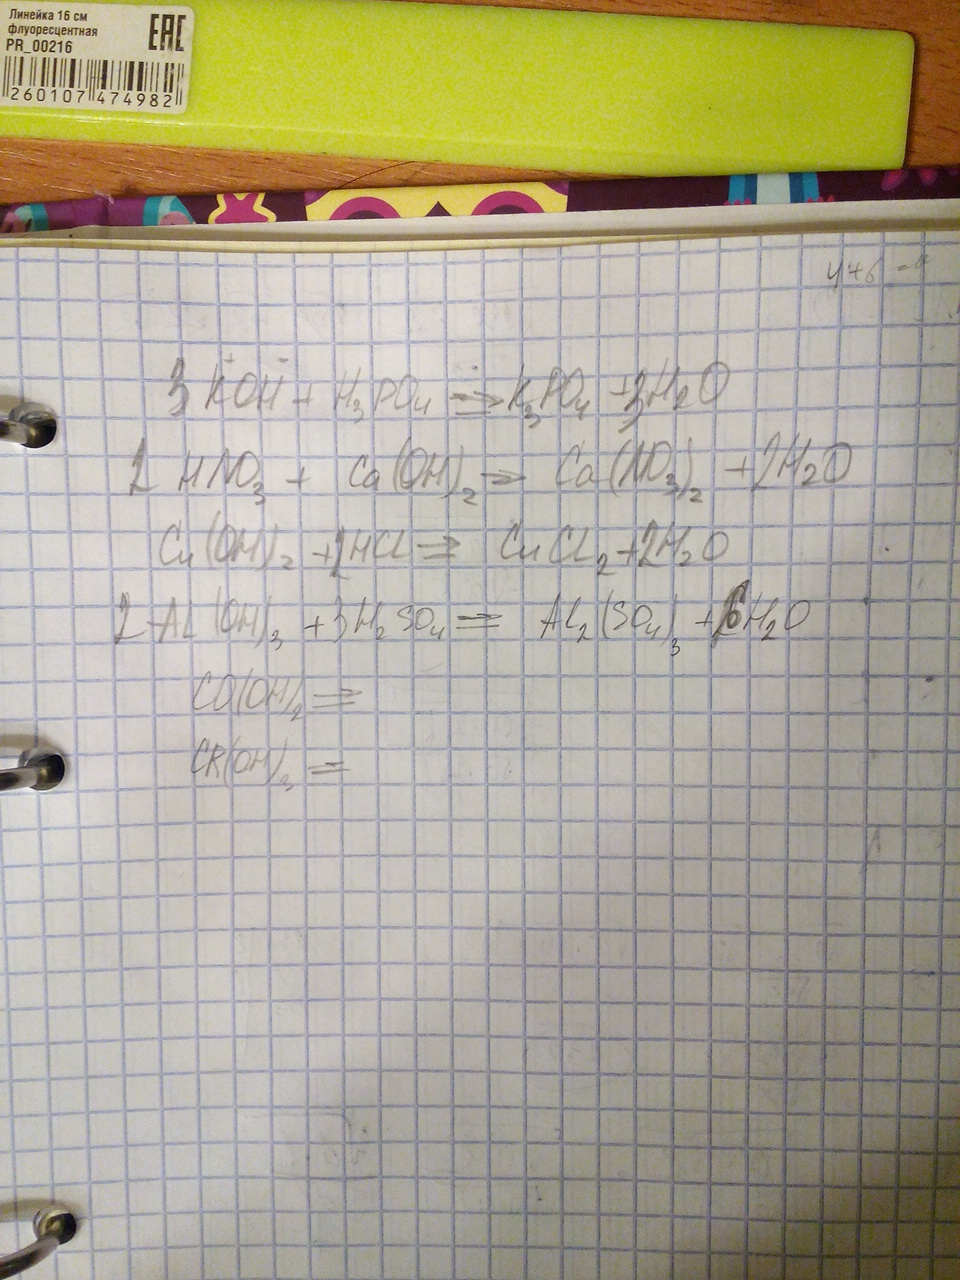 Линейка 16 см
флуоресцентная
PR_00216
EAC
260107 474982
3 K⁺OH⁻ + H₃PO₄ ⇒ K₃PO₄ + 3H₂O
2 HNO₃ + Ca(OH)₂ ⇒ Ca(NO₃)₂ + 2H₂O
Cu(OH)₂ + 2HCl ⇒ CuCl₂ + 2H₂O
2 Al(OH)₃ + 3H₂SO₄ = Al₂(SO₄)₃ + 6H₂O
CO(OH)₂ ⇒
CR(OH)₃ =